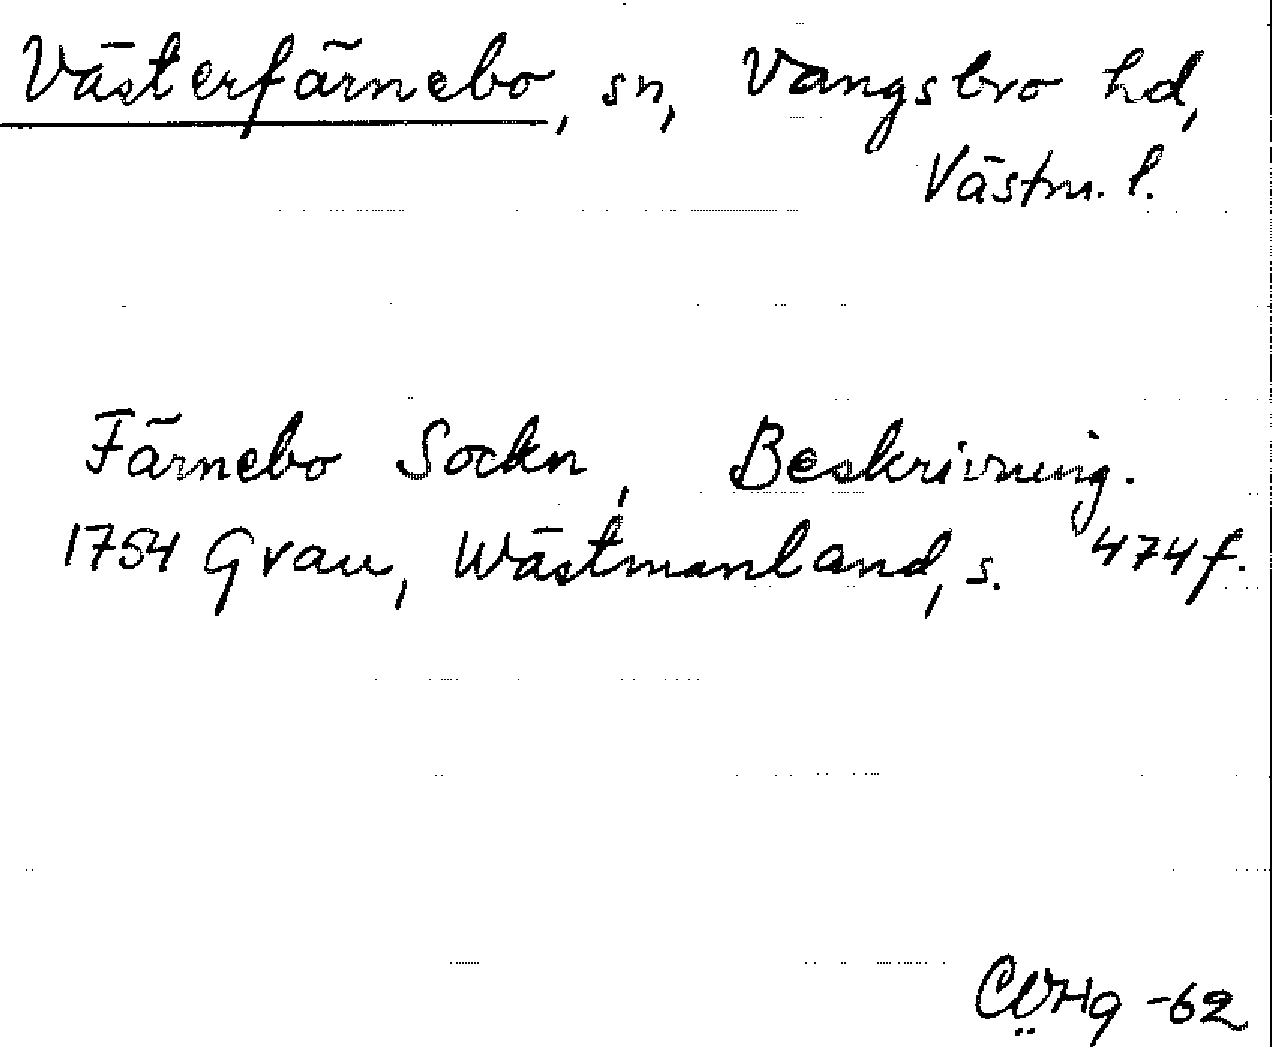 Västerfärnebo, sn, Vangsbro hd,
Västm. l.
Färnebo Sockn, Beskrivning.
1754 Grau, Wästmanland, s. 474f.
-62